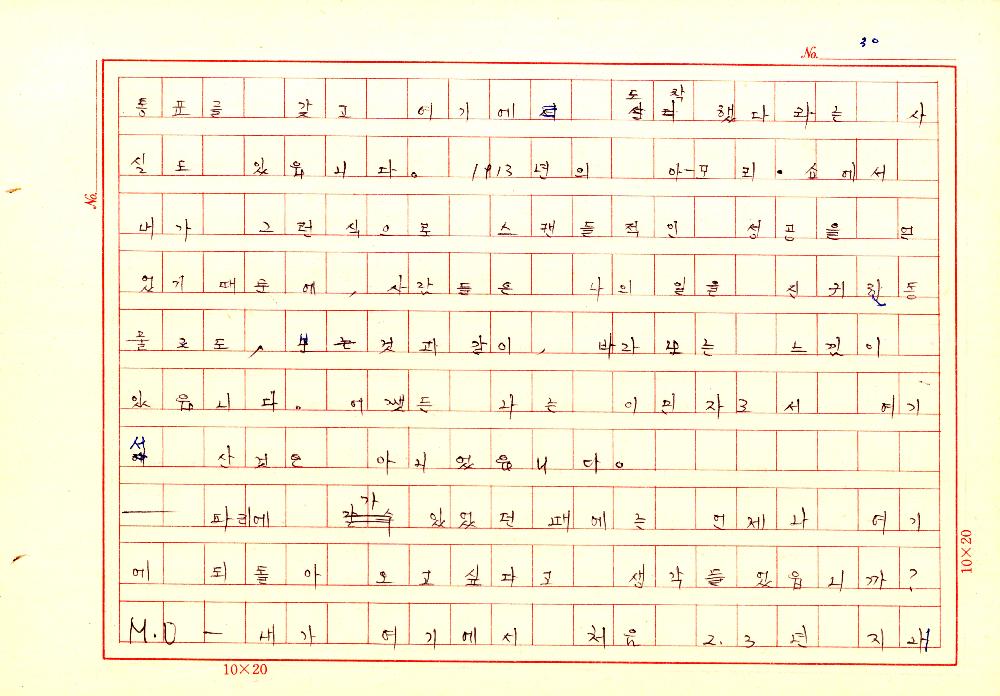 No. 30
통표를 갖고 여기에 도착했다 라는 사
실도 있읍니다。 1913년의 아-모리・쇼에서
내가 그런 식으로 스캔들적인 성공을 얻
었기 때문에, 사람들은 나의 일을 신귀한 동
물로도, 보는 것과 같이, 바라보는 느낌이
있읍니다。 어쨋든 나는 이민자로서 여기
서 산 것은 아니었읍니다。
── 파리에 가 있었던 때에는 언제나 여기
에 되돌아 오고 싶다고 생각들 었읍니까?
M.D ─ 내가 여기에서 처음 2.3년 지나
No.
10×20
10×20